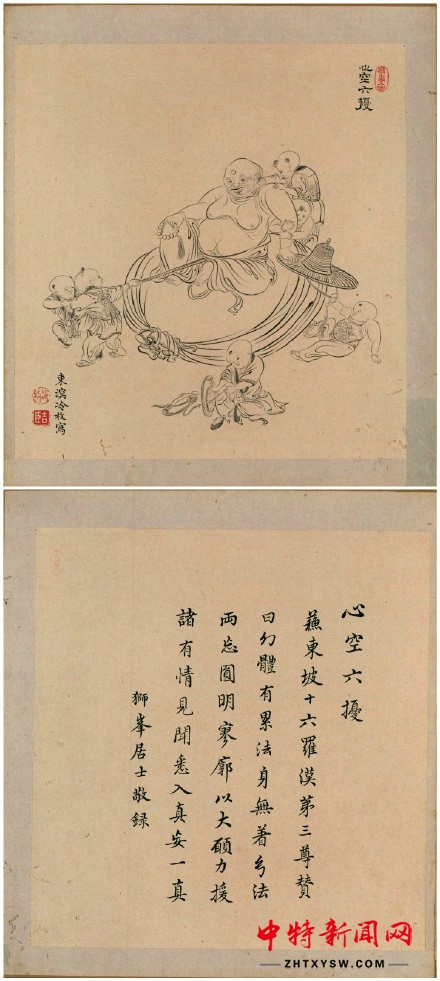 心空六擾
東溟冷枚寫
心空六擾
蘓東坡十六羅漢第三尊贊
曰幻體有累法身無著兮法
兩忘圓明寥廓以大願力援
諸有情見聞悉入真妄一真
獅峯居士敬録
中特新闻网
ZHTXYSW.COM